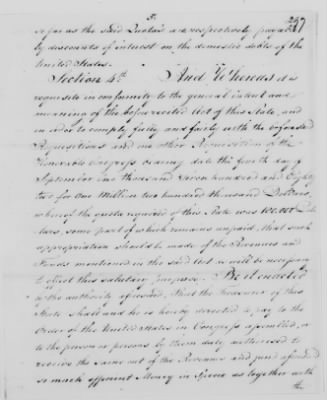 5.
so far as the said Quotas are respectively payable
by discounts of interest on the domestic debts of the
United States.
Section 4th And Whereas it is
requisite in conformity to the general intent and
meaning of the before recited Act of this State, and
in order to comply fully and fairly with the
Requisitions and one other Requisition of the
Honorable Congress bearing date the fourth day of
September one thousand seven hundred and Eighty
two for One Million two hundred thousand Dollars,
whereof the quota required of this State was Dol
lars, some part of which remains unpaid, that such
appropriation should be made of the Revenues and
Funds mentioned in the said Act as will be necessary
to effect this salutary purpose. Be it enacted
by the authority aforesaid, That the Treasurer of this
State shall and he is hereby directed to pay to the
Order of the United States in Congress assembled, or
to the person or persons by them duly authorised to
receive the same out of the Revenue and fund aforesaid
so much Money in Specie as together with
the